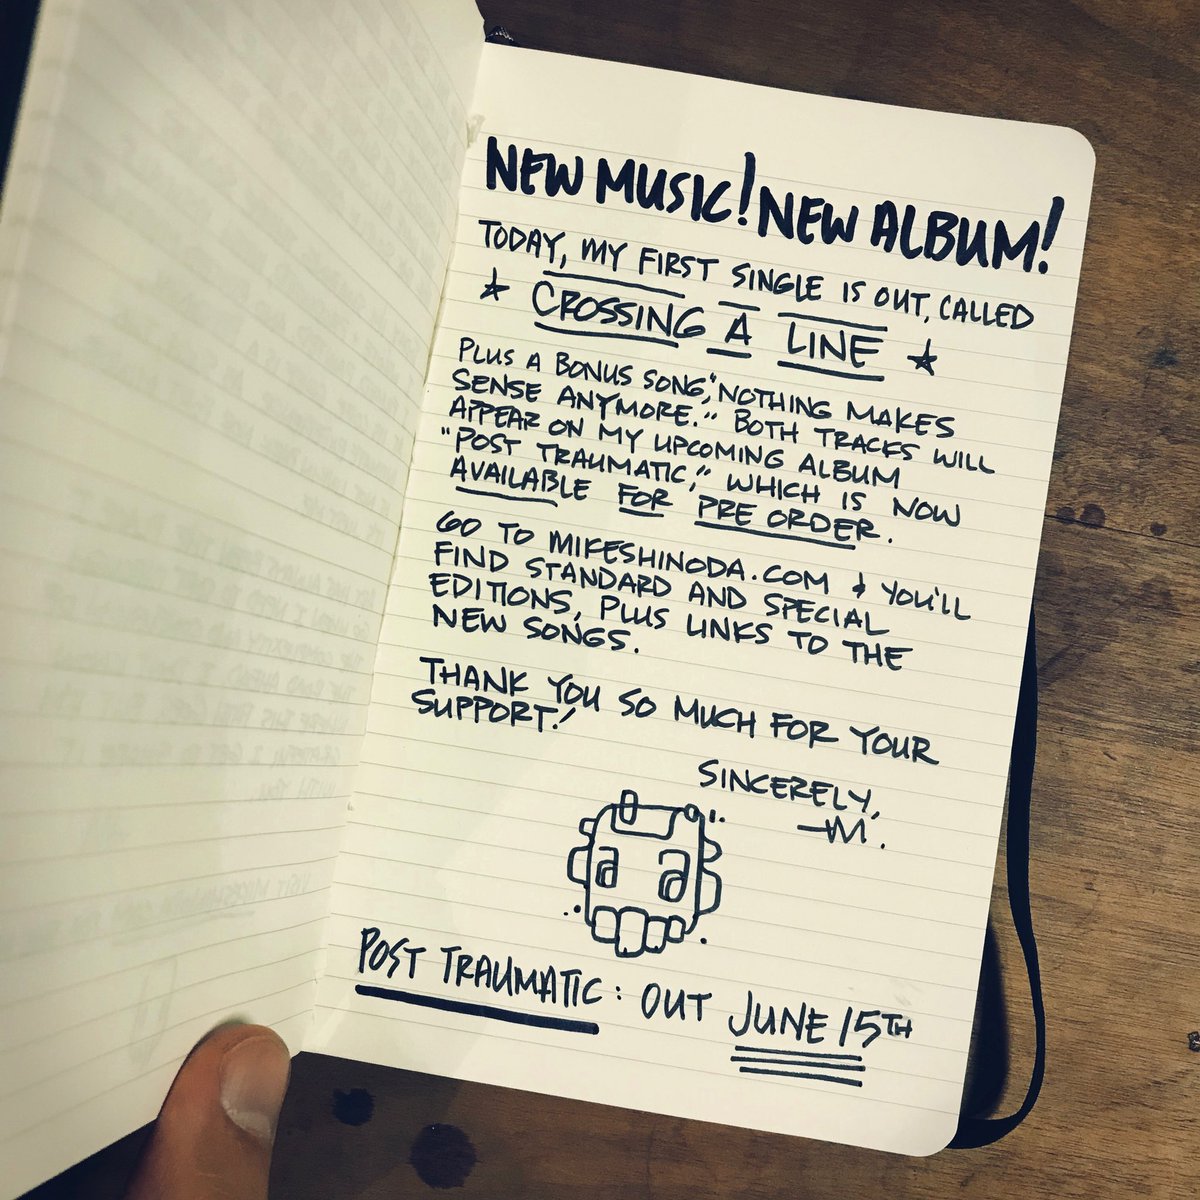 NEW MUSIC! NEW ALBUM!
TODAY, MY FIRST SINGLE IS OUT, CALLED
★ CROSSING A LINE ★
PLUS A BONUS SONG, "NOTHING MAKES
SENSE ANYMORE." BOTH TRACKS WILL
APPEAR ON MY UPCOMING ALBUM
"POST TRAUMATIC," WHICH IS NOW
AVAILABLE FOR PRE ORDER.
GO TO MIKESHINODA.COM & YOU'LL
FIND STANDARD AND SPECIAL
EDITIONS, PLUS LINKS TO THE
NEW SONGS.
THANK YOU SO MUCH FOR YOUR
SUPPORT!
SINCERELY,
—M.
POST TRAUMATIC: OUT JUNE 15TH